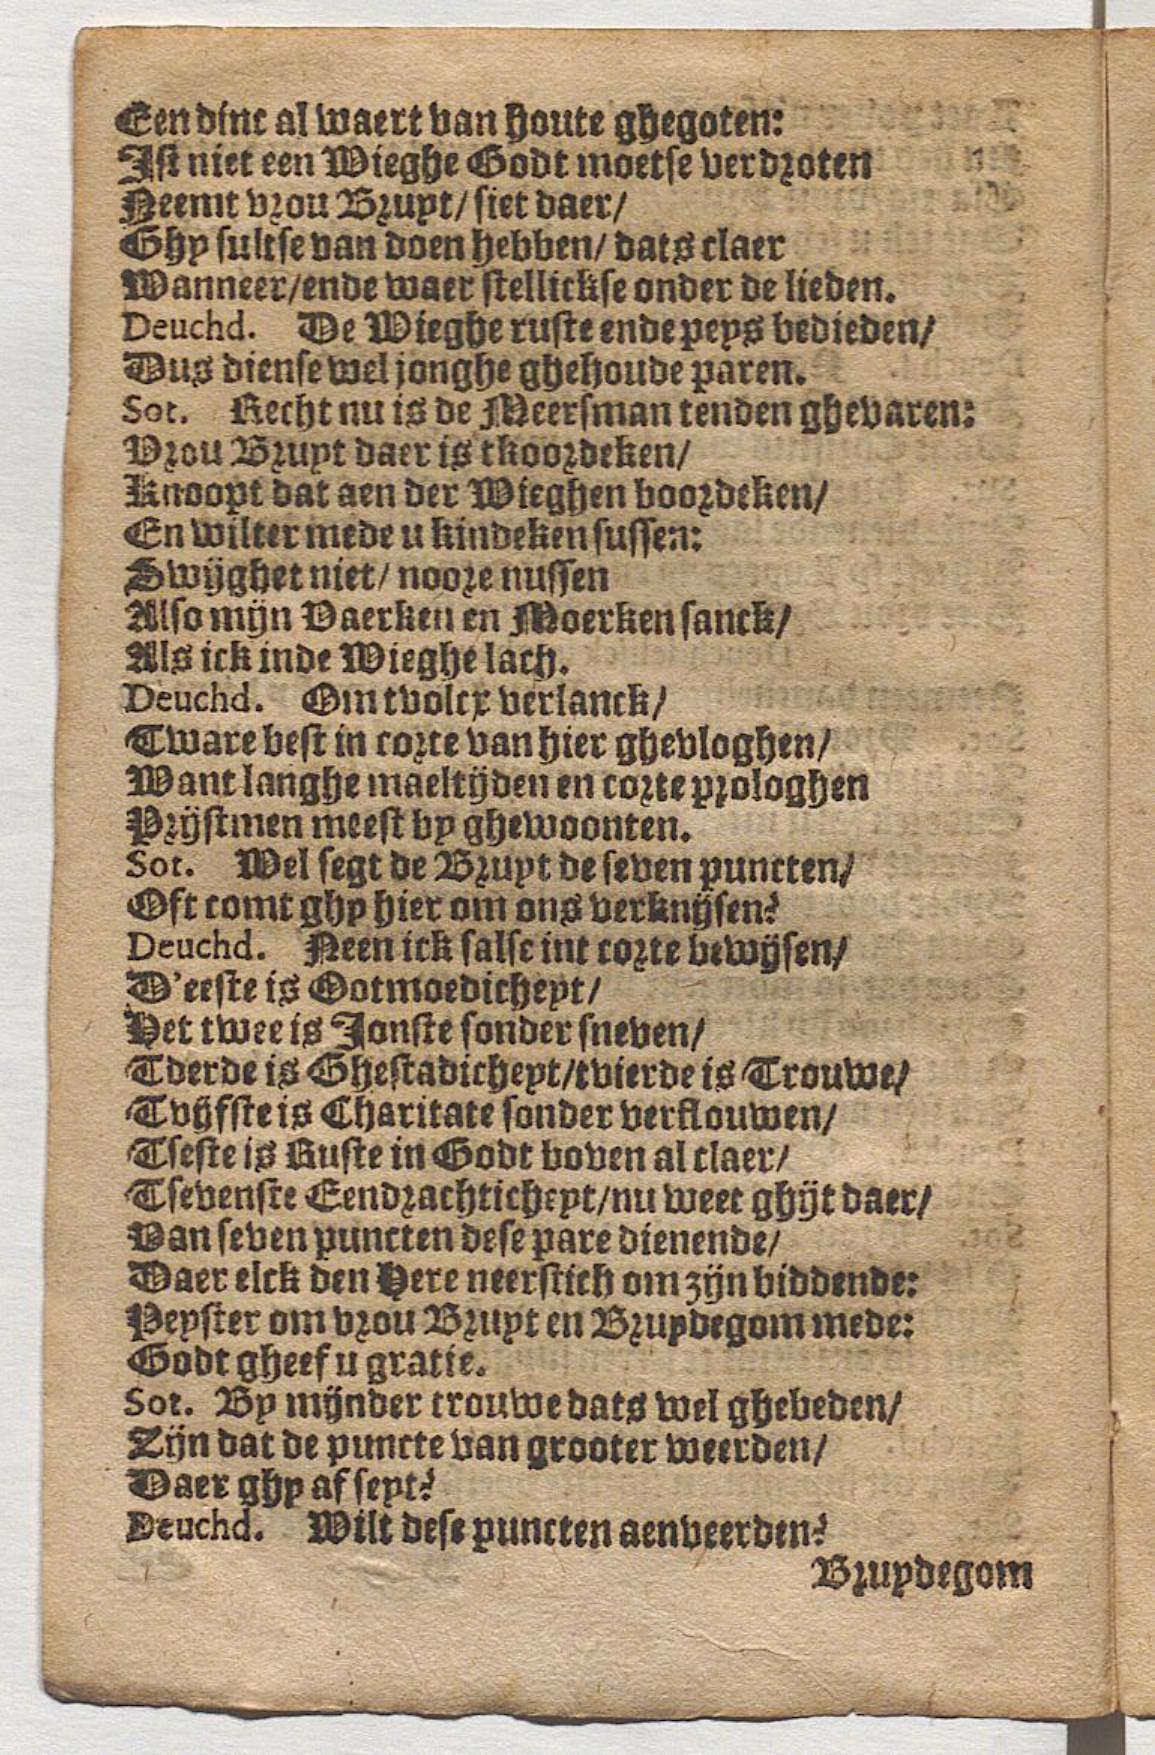 Een dinc al waert van houte ghegoten:
Ist niet een Wieghe Godt moetse verdroten
Neemt vrou Bruyt/ siet daer/
Ghy sultse van doen hebben/ dats claer
Wanneer/ende waer stellickse onder de lieden.
Deuchd. De Wieghe ruste ende peys bedieden/
Dus diense wel jonghe ghehoude paren.
Sot. Recht nu is de Meersman tenden ghevaren:
Vrou Bruyt daer is tkoordeken/
Knoopt dat aen der Wieghen boordeken/
En wilter mede u kindeken sussen:
Swijghet niet/ noore nussen
Also mijn Vaerken en Moerken sanck/
Als ick inde Wieghe lach.
Deuchd. Om tvolcx verlanck/
Tware best in corte van hier ghevloghen/
Want langhe maeltijden en corte prologhen
Prijstmen meest by ghewoonten.
Sot. Wel segt de Bruyt de seven puncten/
Oft comt ghy hier om ons verknijsen?
Deuchd. Neen ick salse int corte bewijsen/
D'eeste is Ootmoedicheyt/
Het twee is Jonste sonder sneven/
Tderde is Ghestadicheyt/tvierde is Trouwe/
Tvijfste is Charitate sonder verflouwen/
Tseste is Ruste in Godt boven al claer/
Tsevenste Eendrachticheyt/nu weet ghijt daer/
Van seven puncten dese pare dienende/
Daer elck den Here neerstich om zijn biddende:
Peyster om vrou Bruyt en Bruydegom mede:
Godt gheef u gratie.
Sot. By mijnder trouwe dats wel ghebeden/
Zijn dat de puncte van grooter weerden/
Daer ghy af seyt?
Deuchd. Wilt dese puncten aenveerden?
Bruydegom